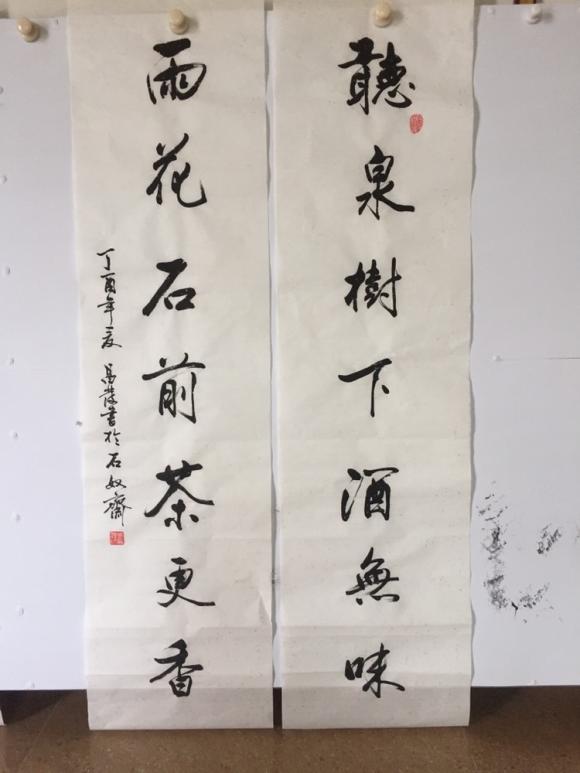 聽泉樹下酒無味
雨花石前茶更香
丁酉年夏 書於石奴齋